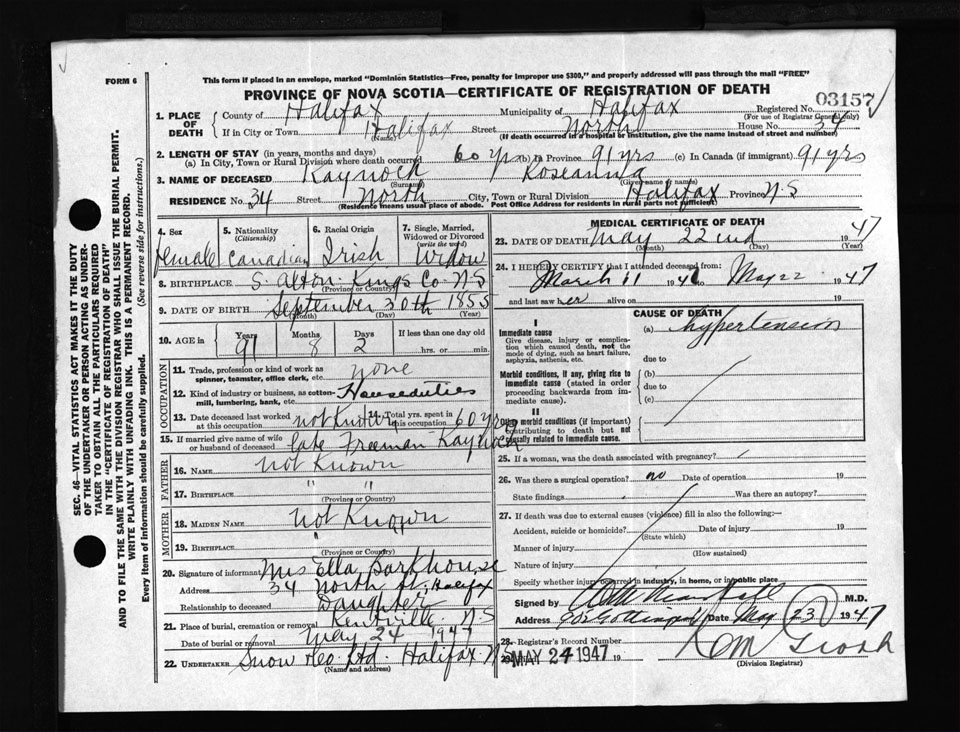 FORM 6
This form if placed in an envelope, marked "Dominion Statistics—Free, penalty for improper use $300," and properly addressed will pass through the mail "FREE"
PROVINCE OF NOVA SCOTIA—CERTIFICATE OF REGISTRATION OF DEATH
03157
1. PLACE OF DEATH
County of Halifax Municipality of Halifax Registered No.
(For use of Registrar General only)
If in City or Town Halifax Street North House No. 34
(Name) (If death occurred in a hospital or institution, give the name instead of street and number)
2. LENGTH OF STAY (in years, months and days)
(a) In City, Town or Rural Division where death occurred 60 yrs (b) In Province 91 yrs (c) In Canada (if immigrant) 91 yrs
3. NAME OF DECEASED Kaynock Roseanna
(Surname) (Given name or names)
RESIDENCE No. 34 Street North City, Town or Rural Division Halifax Province N-S
(Residence means usual place of abode. Post Office Address for residents in rural parts not sufficient)
4. Sex female
5. Nationality (Citizenship) Canadian
6. Racial Origin Irish
7. Single, Married, Widowed or Divorced (write the word) Widow
8. BIRTHPLACE S. Alton Kings Co. N-S
(Province or Country)
9. DATE OF BIRTH September 30th 1855
(Month) (Day) (Year)
10. AGE in Years 91 Months 8 Days 2 If less than one day old
hrs. or min.
OCCUPATION
11. Trade, profession or kind of work as spinner, teamster, office clerk, etc. none
12. Kind of industry or business, as cotton-mill, lumbering, bank, etc. Houseduties
13. Date deceased last worked at this occupation not Known
14. Total yrs. spent in this occupation 60 yrs
15. If married give name of wife or husband of deceased late Freeman Kaynock
FATHER
16. NAME Not Known
17. BIRTHPLACE " "
(Province or Country)
MOTHER
18. MAIDEN NAME Not Known
19. BIRTHPLACE "
(Province or Country)
20. Signature of informant Mrs Ella Barkhouse
Address 34 North St. Halifax
Relationship to deceased Daughter
21. Place of burial, cremation or removal Kentville N-S
Date of burial or removal May 24 1947
22. UNDERTAKER Snow & Co. Ltd. Halifax N-S
(Name and address)
MEDICAL CERTIFICATE OF DEATH
23. DATE OF DEATH May 22nd 1947
(Month) (Day) (Year)
24. I HEREBY CERTIFY that I attended deceased from:
March 11 194 to May 22 1947
and last saw her alive on 19
CAUSE OF DEATH
I
Immediate cause
Give disease, injury or complication which caused death, not the mode of dying, such as heart failure, asphyxia, asthenia, etc.
(a) hypertension
due to
Morbid conditions, if any, giving rise to immediate cause (stated in order proceeding backwards from immediate cause).
(b)
due to
(c)
II
Other morbid conditions (if important) contributing to death but not causally related to immediate cause.
25. If a woman, was the death associated with pregnancy?
26. Was there a surgical operation? no Date of operation 19
State findings Was there an autopsy?
27. If death was due to external causes (violence) fill in also the following:—
Accident, suicide or homicide? Date of injury 19
(State which)
Manner of injury
(How sustained)
Nature of injury
Specify whether injury occurred in industry, in home, or in public place
Signed by M.D.
Address Date May 23 1947
28. Registrar's Record Number
29. MAY 24 1947 19
(Division Registrar)
SEC. 46—VITAL STATISTICS ACT MAKES IT THE DUTY
OF THE UNDERTAKER OR PERSON ACTING AS UNDERTAKER
TO OBTAIN ALL THE PARTICULARS REQUIRED
IN THE "CERTIFICATE OF REGISTRATION OF DEATH"
AND TO FILE THE SAME WITH THE DIVISION REGISTRAR WHO SHALL ISSUE THE BURIAL PERMIT.
WRITE PLAINLY WITH UNFADING INK. THIS IS A PERMANENT RECORD.
Every item of information should be carefully supplied. (See reverse side for instructions.)